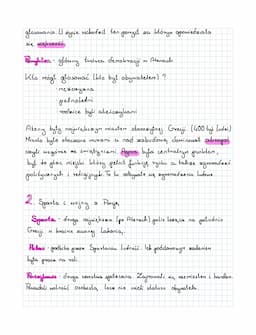 głosowania. W życie wchodził ten pomysł za którym opowiedziała
się większość.
Perykles - główny twórca demokracji w Atenach
Kto mógł głosować (kto był obywatelem) ?
- mężczyzna
- pełnoletni
- rodzice byli ateńczykami
Ateny były największym miastem starożytnej Grecji (400 tyś ludzi)
Miasto było otoczone murami a nad zabudową dominował akropol
czyli wzgórze ze świątyniami. Agora była centralnym punktem,
był to plac miejski który pełnił funkcję rynku a także zgromadzeń
politycznych i religijnych. To tu odbywały się zgromadzenia ludowe.
2. Sparta i wojny z Persją
Sparta - druga największa (po Atenach) polis leżąca na południu
Grecji w krainie zwanej Lakonią.
- podbita przez Spartan ludność. Ich podstawowym zadaniem
była praca na roli.
- druga warstwa społeczna. Zajmowali się rzemiosłem i handlem.
Posiadali wolność osobistą, lecz nie mieli statusu obywatela.